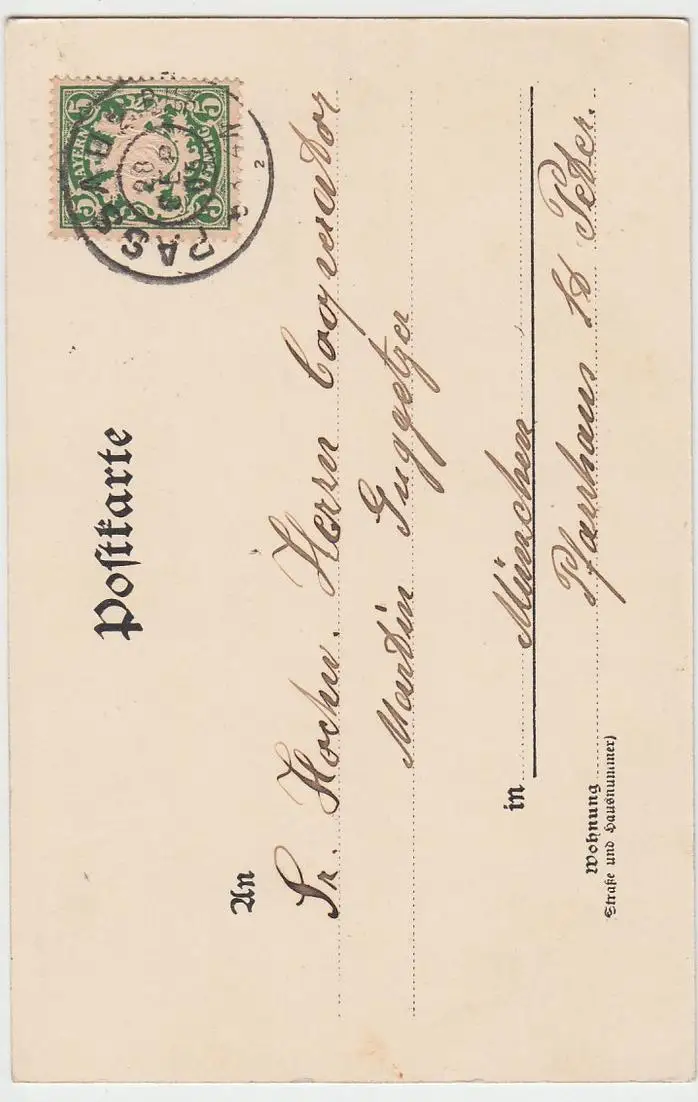 Postkarte
BAYERN
5 5
5 5
PASSAU
28
SEP
An
Sr. Hochw. Herrn Cooperator
Martin Guggetzer
in München
Wohnung Pfarrhaus St Peter.
(Straße und Hausnummer)